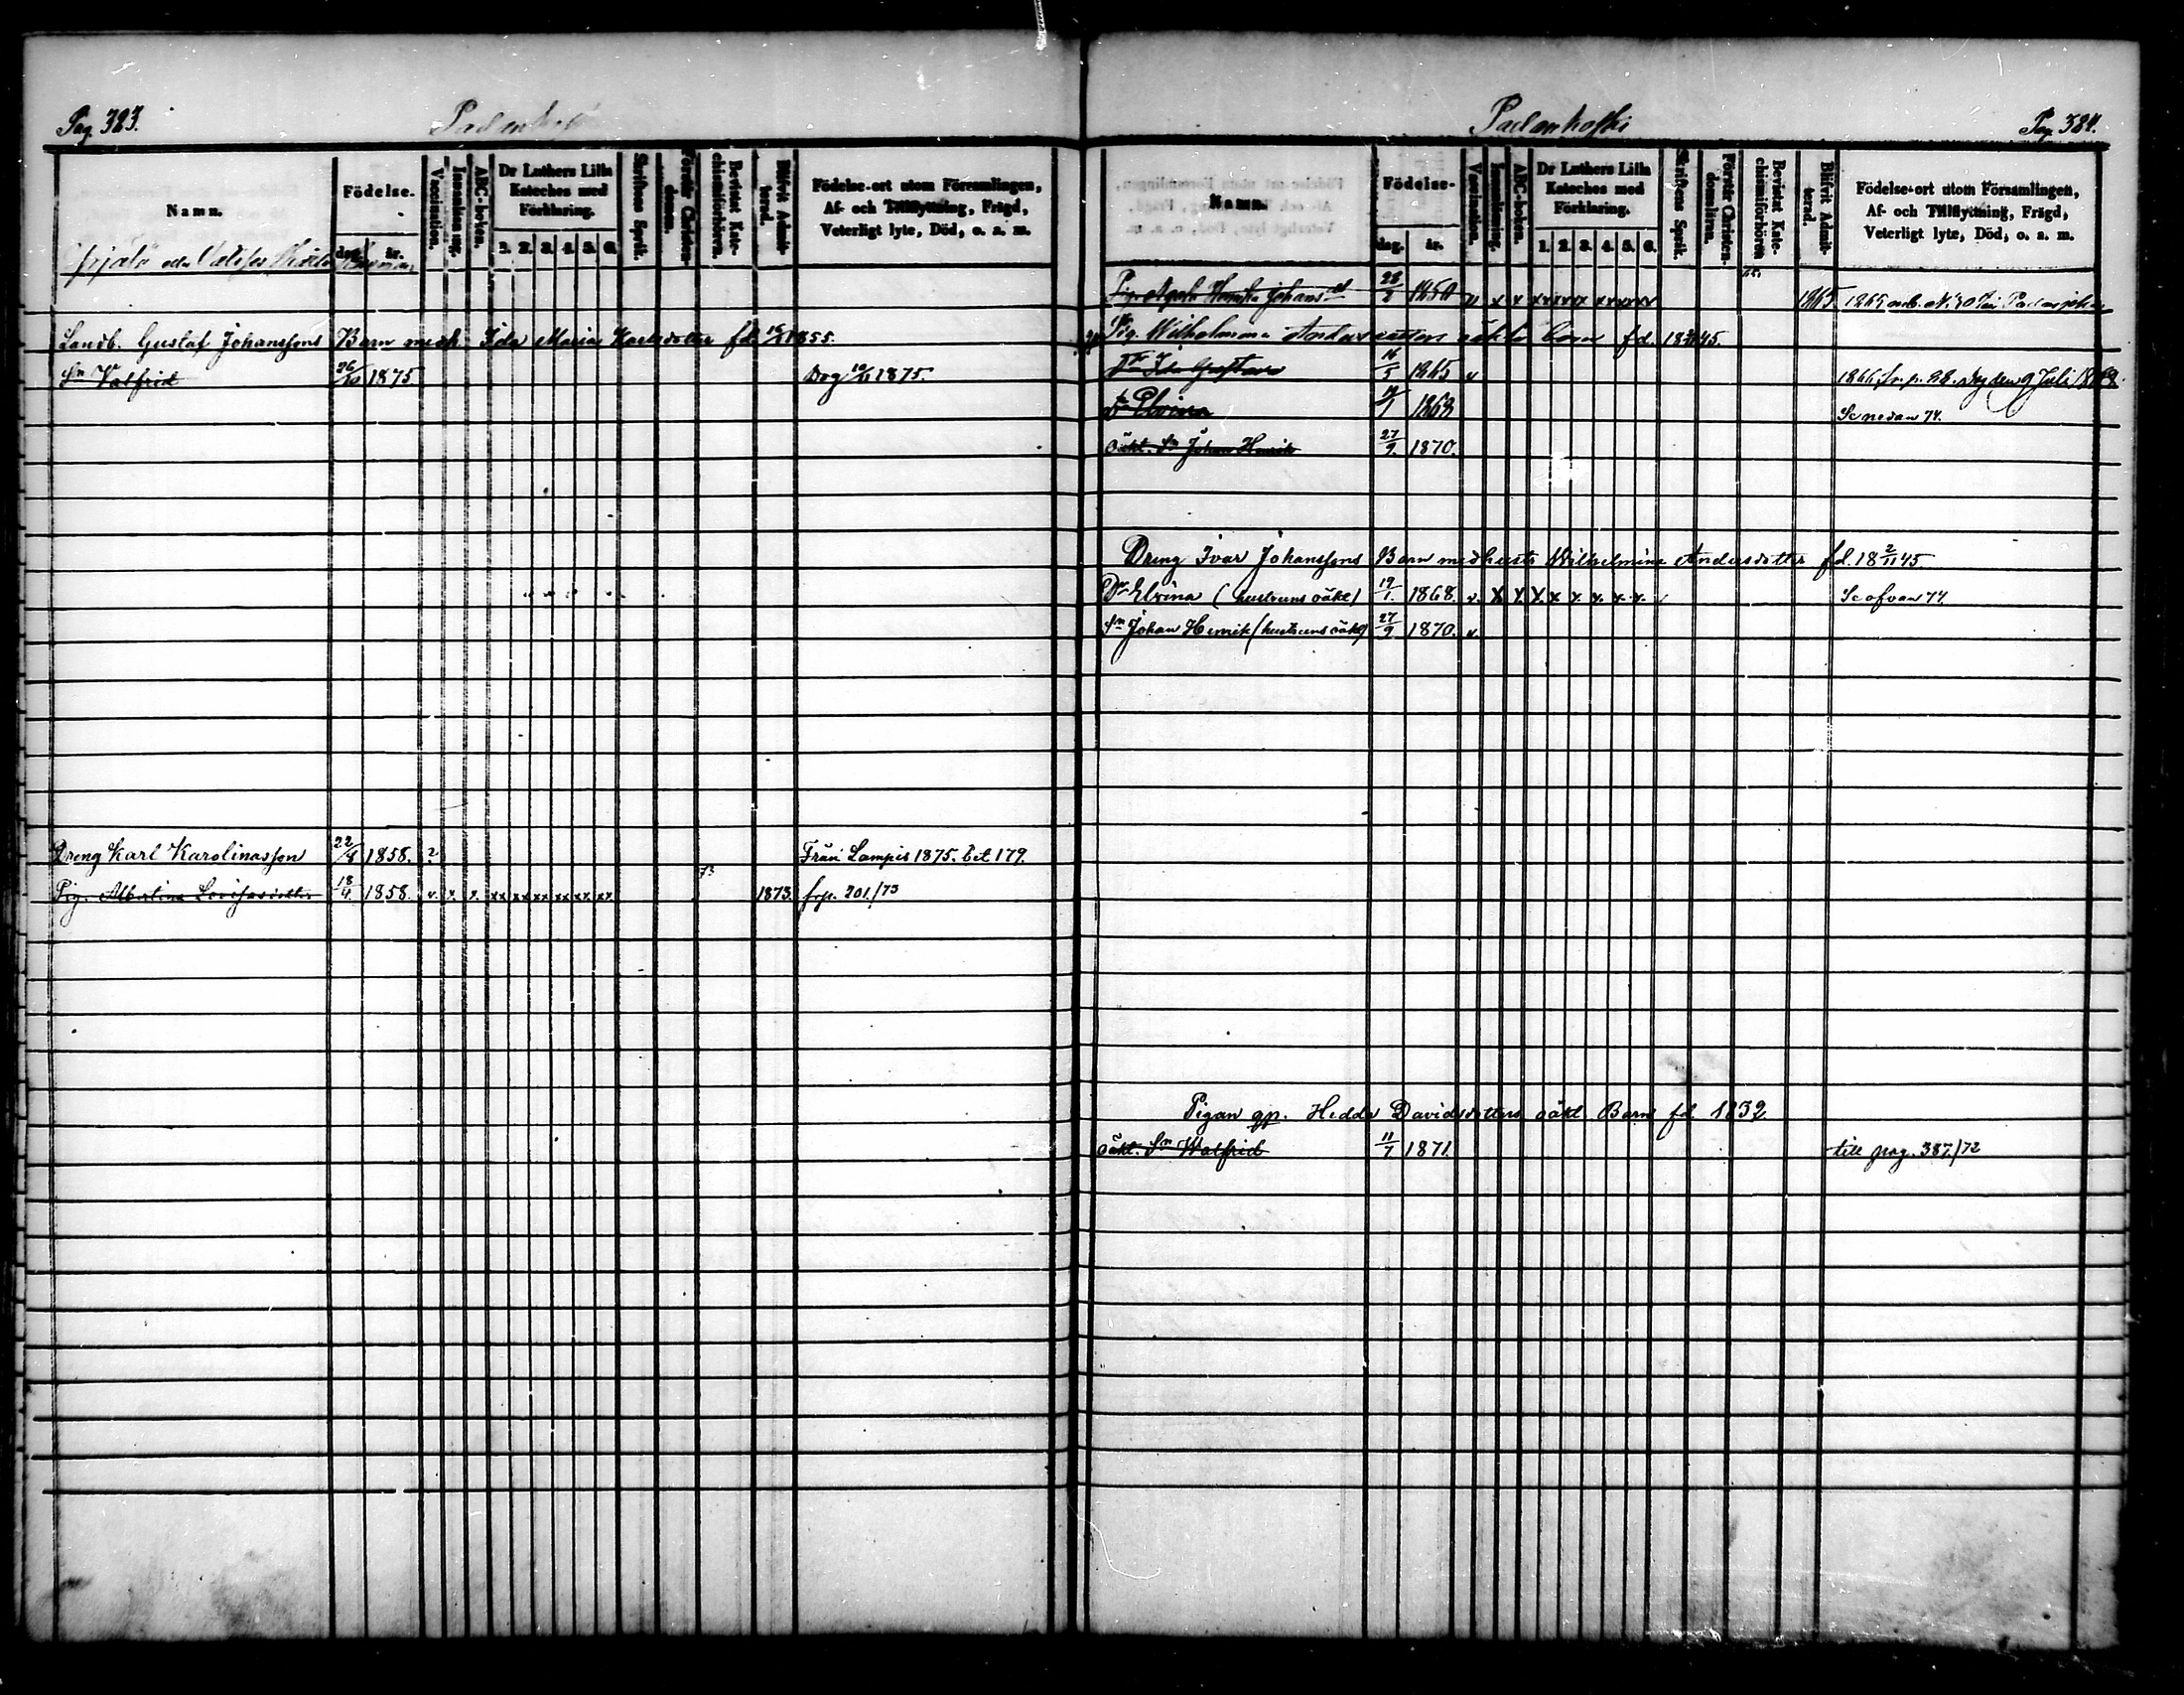 Pag. 383.
Namn.
Födelse.
dag. år.
Vaccination.
Innanläsning.
ABC-boken.
Dr Luthers Lilla Kateches med Förklaring.
1. 2. 3. 4. 5. 6.
Skriftens Språk.
Förstår Christendomen.
Bevistat Katechismiförhören.
Blifvit Admitterad.
Födelse-ort utom Församlingen,
Af- och Tillflyttning, Frägd,
Veterligt lyte, Död, o. s. m.
Landb. Gustaf Johanssons Barn med h. Ida Maria Karlsdotter fd 1855.
Sn Valfrid 26/10 1875 Dog 1875.
Dreng Karl Karolinasson 1858. ? Från Lampis 1875. bet 179.
73
Pig. Albertina Lovisasdotter 18/4 1858. v. x. x. xx xx xx xx xx xx 1873. frp. 201./73
Padankoski
Pag. 384.
Namn.
Födelse-
dag. år.
Vaccination.
Innanläsning.
ABC-boken.
Dr Luthers Lilla Kateches med Förklaring.
1. 2. 3. 4. 5. 6.
Skriftens Språk.
Förstår Christendomliren.
Bevistat Katechismiförhören
Blifvit Admitterad.
Födelse-ort utom Församlingen,
Af- och Tillflyttning, Frägd,
Veterligt lyte, Död, o. s. m.
65.
Pig. Henrika Johansdt 28/2 1850 v x x 1865 1865
Pig. Wilhelmina Andersdotters oäkta barn fd.
Dr Ida Gustava 16/5 1865 v 1866 fr. p. Dog den 9 Juli 1868.
Dr Elvina 1868 Se nedan 74.
oäkt. Sn Johan Henrik 27/9 1870.
Dreng Ivar Johanssons Barn med hust. Wilhelmina Andersdotter fd. 18 2/11 45
Dr Elvina (hustruns oäkt) 19/1 1868. v. x x. x. x x. x. x. x. Se ofvan 74.
Sn Johan Henrik (hustruns oäkt) 27/9 1870. v.
Pigan gp. Hedda Davidsdotters oäkt. Barn fd 1832
oäkt. Sn Walfrid 11/7 1871. till pag. 387./72